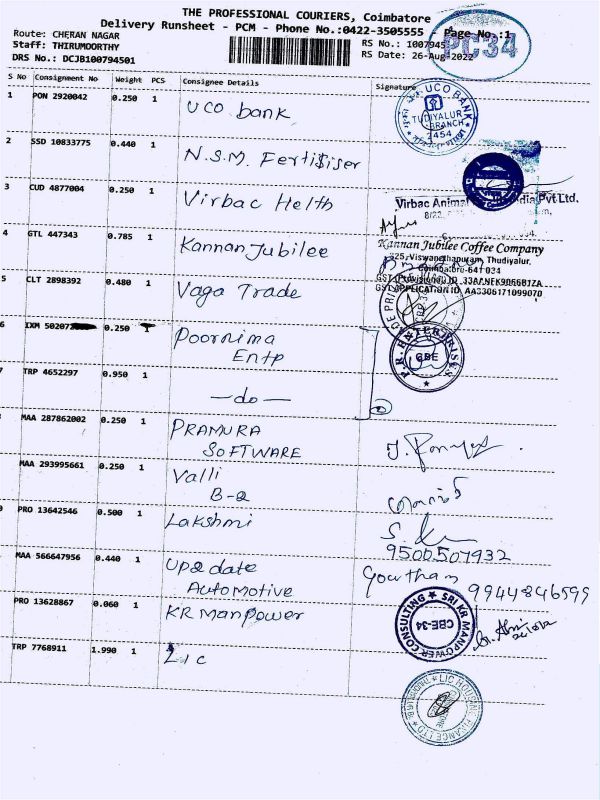 THE PROFESSIONAL COURIERS, Coimbatore
Delivery Runsheet - PCM - Phone No.:0422-3505555 - Page No.:1
Route: CHERAN NAGAR
RS No.: 1007945
PC34
Staff: THIRUMOORTHY
RS Date: 26-Aug-2022
DRS No.: DCJB100794501
S No Consignment No Weight PCS Consignee Details Signature
1 PON 2920042 0.250 1 UCO bank
UCO BANK
TUDIYALUR
BRANCH
2454
2 SSD 10833775 0.440 1 N.S.M. Fertiliser
3 CUD 4877004 0.250 1 Virbac Helth
Virbac Animal India Pvt.Ltd.
4 GTL 447343 0.785 1 Kannan Jubilee
Kannan Jubilee Coffee Company
325, Viswanathapuram, Thudiyalur,
Coimbatore-641 034
5 CLT 2898392 0.480 1 Vaga Trade
GST APPLICATION ID AA3306171099070
6 IXM 50207 0.250 Poornima
Entp
CBE
TRP 4652297 0.950 1 -do-
MAA 287862002 0.250 1 PRAMURA
SOFTWARE
MAA 293995661 0.250 1 Valli
B-2
PRO 13642546 0.500 1 Lakshmi
9500507932
MAA 566647956 0.440 1 Up2date
Automotive
Gowtham 9944846599
PRO 13628867 0.060 1 KR Manpower
SRI KR MANPOWER CONSULTING
CBE-34
TRP 7768911 1.990 1 Lic
LIC HOUSING FINANCE LTD